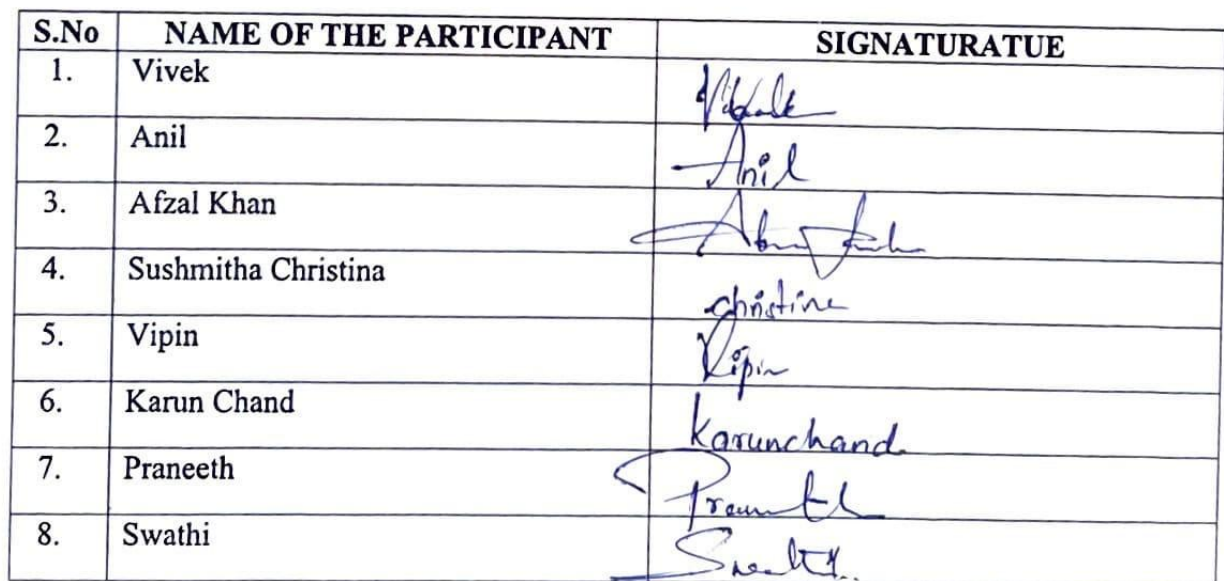 S.No NAME OF THE PARTICIPANT SIGNATURATUE
1. Vivek
2. Anil Anil
3. Afzal Khan
4. Sushmitha Christina christine
5. Vipin Vipin
6. Karun Chand Karunchand
7. Praneeth
8. Swathi